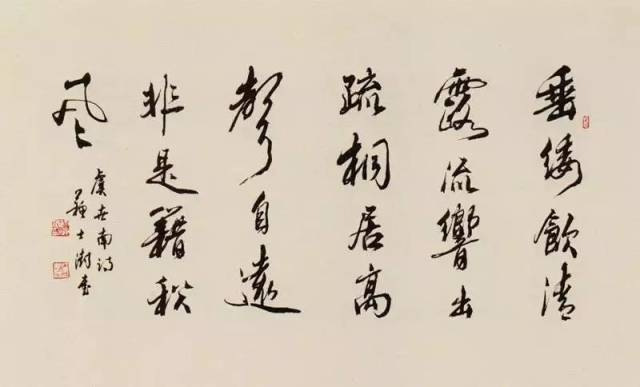 垂緌飲清
露流響出
疏桐居高
聲自遠
非是籍秋
風
虞世南詩
蘇士澍書